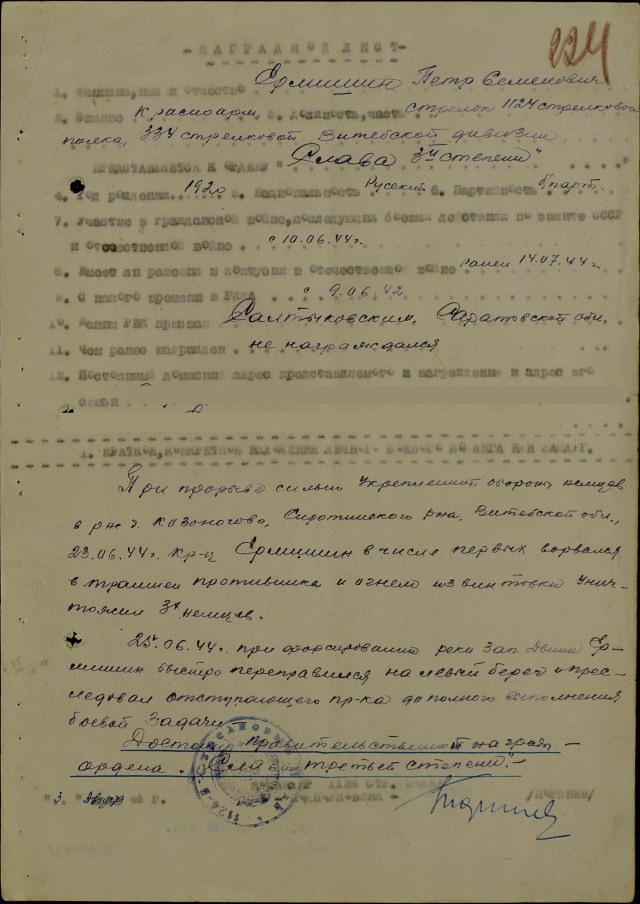 224
- НАГРАДНОЙ ЛИСТ -
1. Фамилия, имя и отчество Ермишин Петр Семенович
2. Звание Красноарм. 3. Должность, часть стрелок 1124 стрелкового
полка, 334 стрелковой Витебской дивизии
ПРЕДСТАВЛЯЕТСЯ К ОРДЕНУ "Слава 3й степени"
4. Год рождения 1920 5. Национальность Русский 6. Партийность б/парт.
7. Участие в гражданской войне, последующих боевых действиях по защите СССР
и отечественной войне с 10.06.44г.
8. Имеет ли ранения и контузии в отечественной войне ранен 14.07.44г.
9. С какого времени в РККА с 9.06.42
10. Каким РВК призван Салтыковским, Саратовской обл.
11. Чем ранее награжден не награждался
12. Постоянный домашний адрес представляемого к награждению и адрес его
семьи
1. КРАТКОЕ, КОНКРЕТНОЕ ИЗЛОЖЕНИЕ ЛИЧНОГО БОЕВОГО ПОДВИГА ИЛИ ЗАСЛУГ.
При прорыве сильно укрепленной обороны немцев
в р-не д. Казоногово, Сиротинского р-на, Витебской обл.,
23.06.44г. кр-ц Ермишин в числе первых ворвался
в траншеи противника и огнем из винтовки унич-
тожил 3х немцев.
25.06.44г. при форсировании реки Зап. Двина Ер-
мишин быстро переправился на левый берег и прес-
ледовал отступающего пр-ка до полного выполнения
боевой задачи.
Достоин правительственной награды -
ордена "Слава третьей степени". -
1124 СТР.
"3" Августа 44 г.